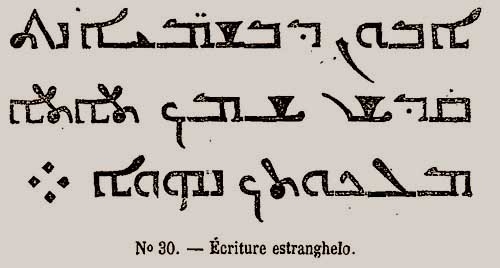 ܐܒܘܢ ܕܒܫܡ̈ܝܐ ܢܬ
ܩܕܫ ܫܡܟ ܬܐܬܐ
ܡܠܟܘܬܟ ܢܗܘܐ ܀
No 30. — Écriture estranghelo.